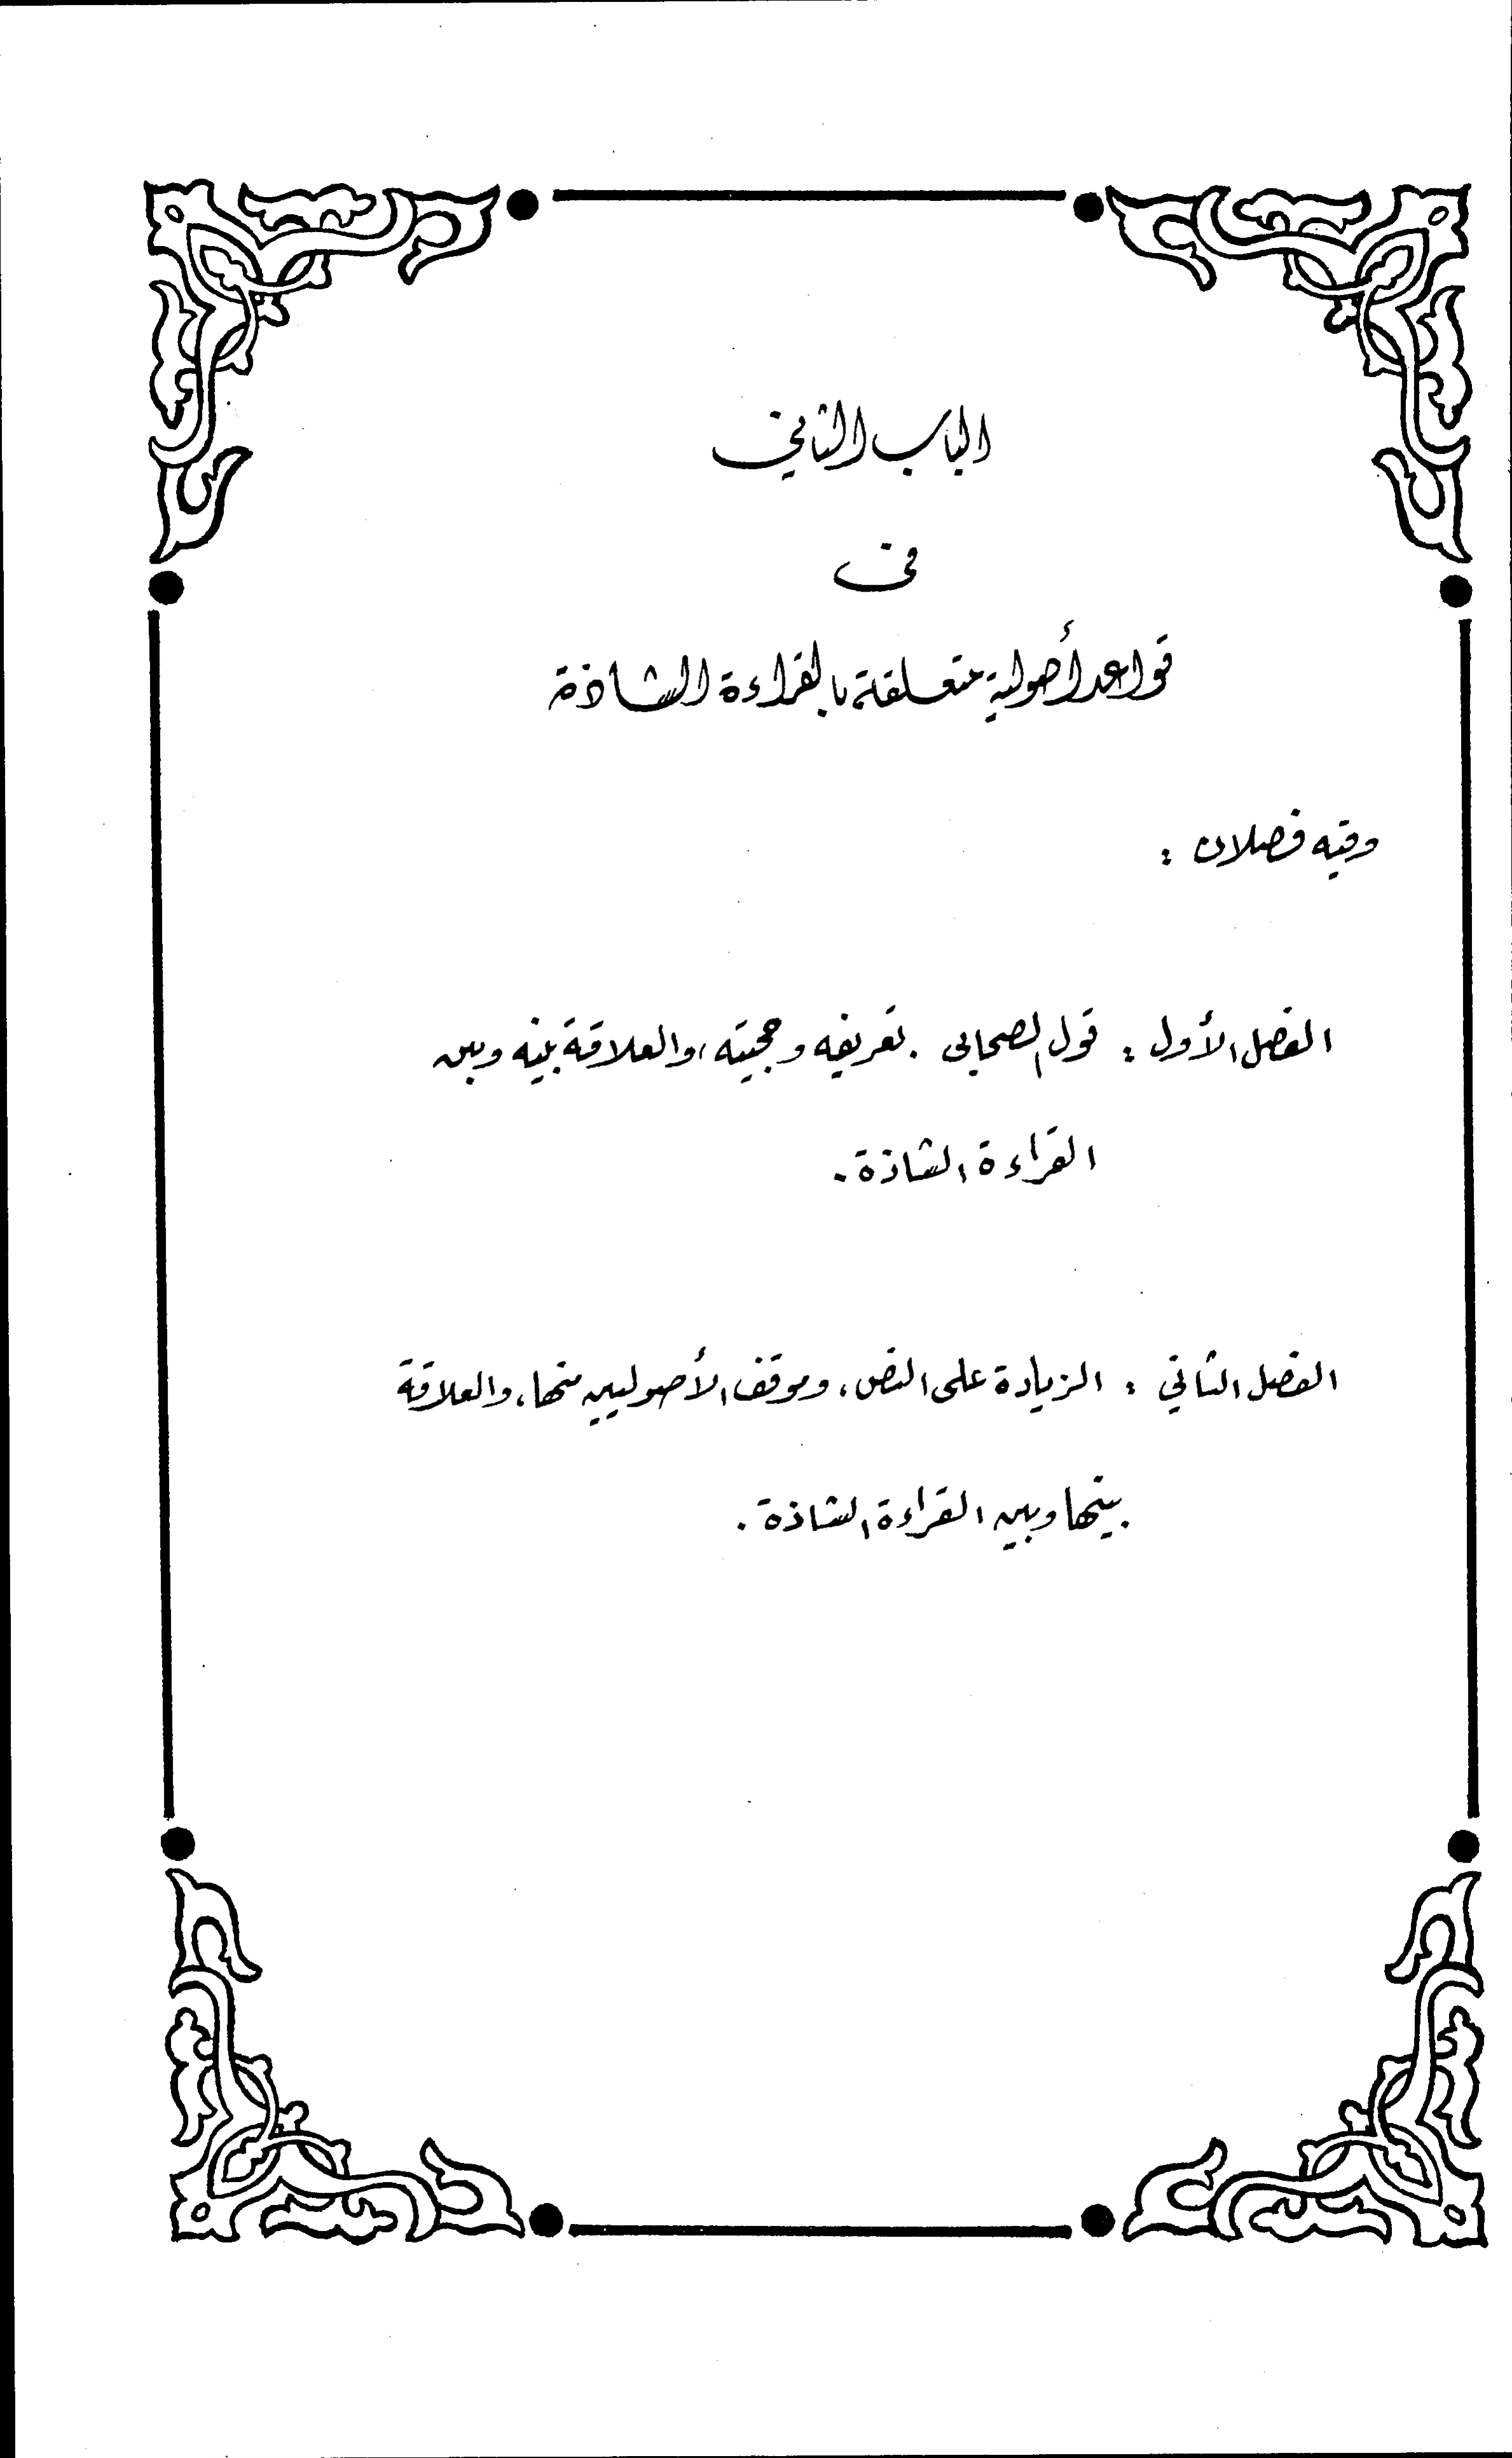 الباب الثاني
في
قواعد أصولية متعلقة بالقراءة الشاذة
وفيه فصلان :
الفصل الأول : قول الصحابي . تعريفه وحجيته ، والعلاقة بينه وبين
القراءة الشاذة .
الفصل الثاني : الزيادة على النص ، وموقف الأصوليين منها ، والعلاقة
بينها وبين القراءة الشاذة .